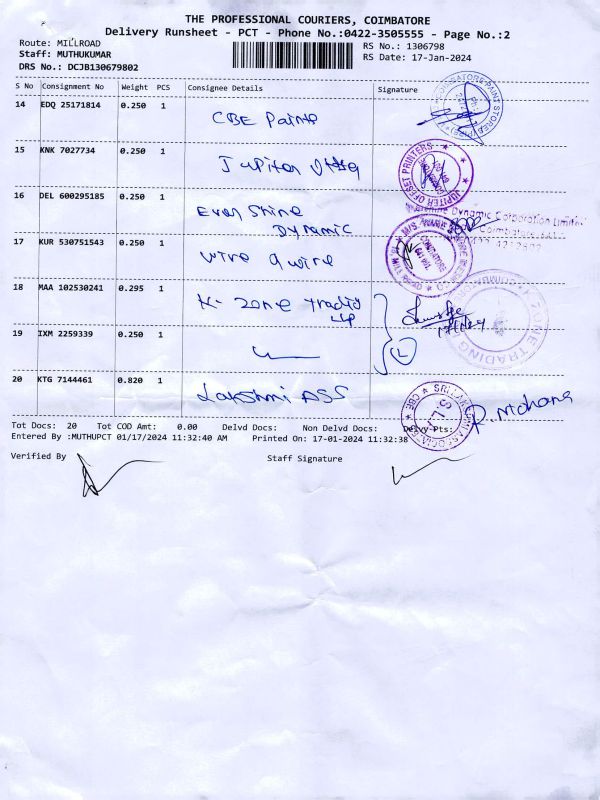 THE PROFESSIONAL COURIERS, COIMBATORE
Delivery Runsheet - PCT - Phone No.:0422-3505555 - Page No.:2
Route: MILLROAD
RS No.: 1306798
Staff: MUTHUKUMAR
RS Date: 17-Jan-2024
DRS No.: DCJB130679802
S No Consignment No Weight PCS Consignee Details Signature
14 EDQ 25171814 0.250 1
CBE Paints
15 KNK 7027734 0.250 1
Jupiter
JUPITER OFFSET PRINTERS
16 DEL 600295185 0.250 1
Ever Shine
Dynamic
Dynamic Corporation Limited
17 KUR 530751543 0.250 1
wire a wire
18 MAA 102530241 0.295 1
K- Zone
K ZONE TRADING
19 IXM 2259339 0.250 1
L
20 KTG 7144461 0.820 1
Lakshmi ASS
R. Mohana
Tot Docs: 20 Tot COD Amt: 0.00 Delvd Docs: Non Delvd Docs: Delvy Pts:
Entered By :MUTHUPCT 01/17/2024 11:32:40 AM Printed On: 17-01-2024 11:32:38
Verified By Staff Signature